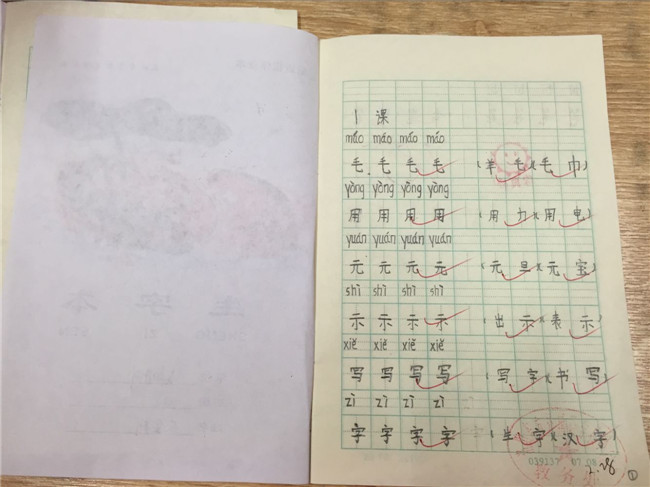 1 课
máo máo máo máo
毛 毛 毛 毛 (羊 毛)(毛 巾)
yòng yòng yòng yòng
用 用 用 用 (用 力)(用 电)
yuán yuán yuán yuán
元 元 元 元 (元 旦)(元 宝)
shì shì shì shì
示 示 示 示 (出 示)(表 示)
xiě xiě xiě xiě
写 写 写 写 (写 字)(书 写)
zì zì zì zì
字 字 字 字 (生 字)(汉 字)
2.28
①